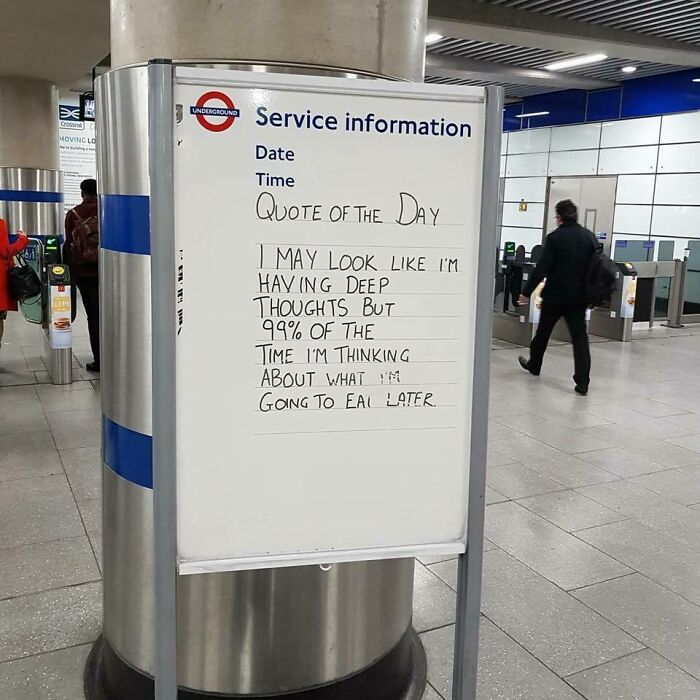 UNDERGROUND
Service information
Date
Time
QUOTE OF THE DAY
I MAY LOOK LIKE I'M
HAVING DEEP
THOUGHTS BUT
99% OF THE
TIME I'M THINKING
ABOUT WHAT I'M
GOING TO EAT LATER.
Crossrail
MOVING LO